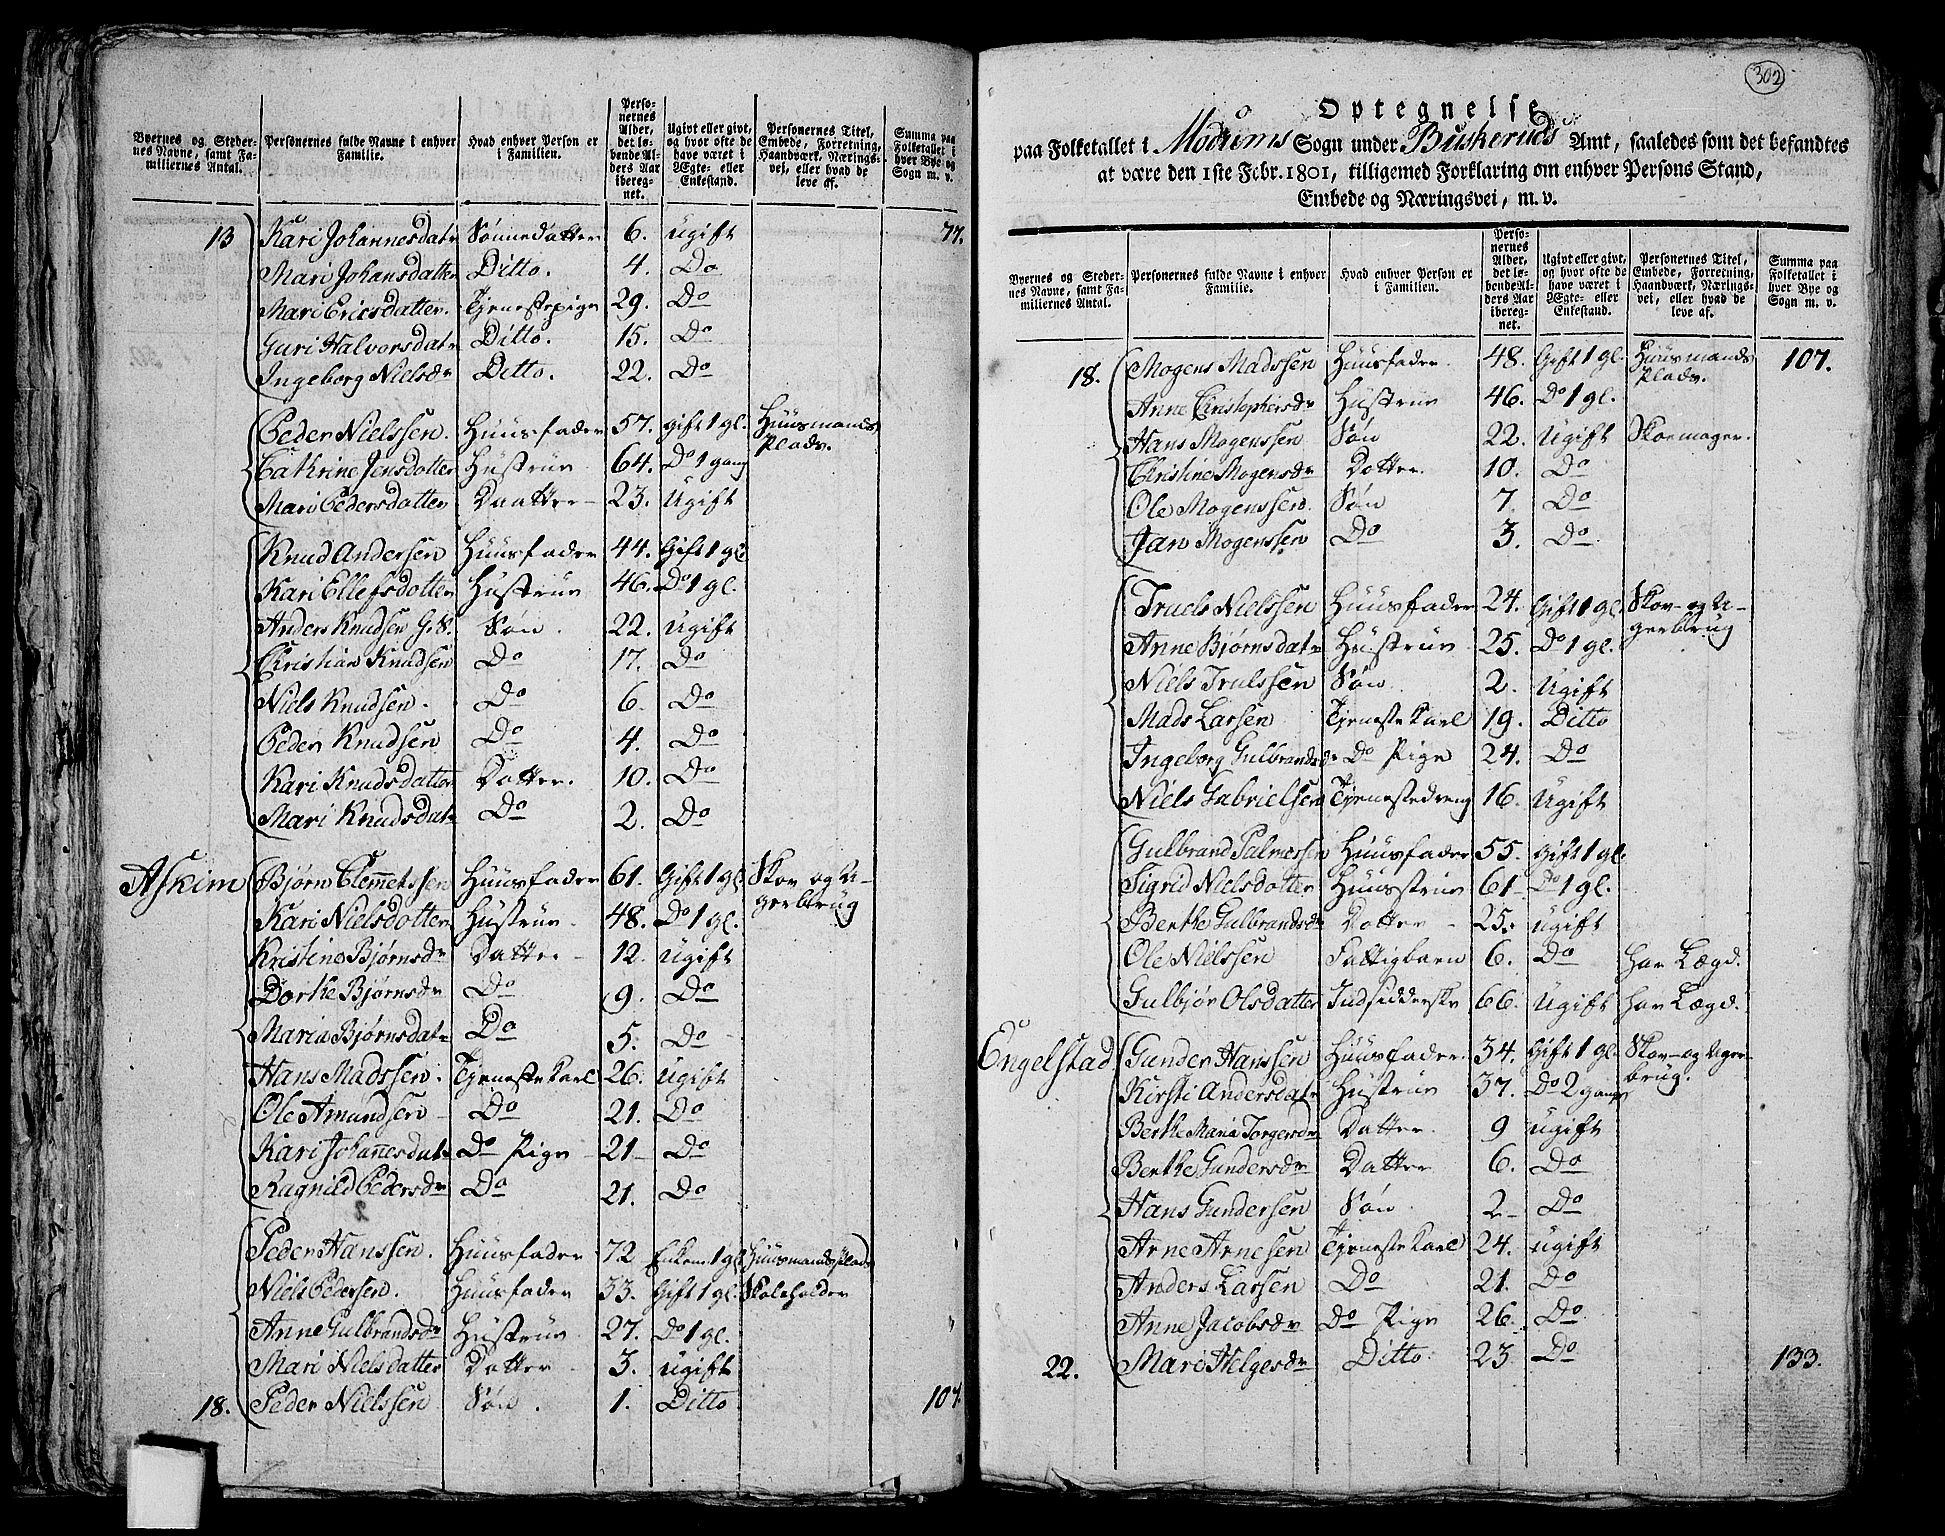 Byernes og Steder- nes Navne, samt Fa- miliernes Antal. | Personernes fulde Navne i enhver Familie. | Hvad enhver Person er i Familien. | Perso- nernes Alder, det lø- bende Al- ders Aar ibereg- net. | Ugivt eller givt, og hvor ofte de have været i Ægte- eller Enkestand. | Personernes Titel, Embede, Forretning, Haandværk, Nærings- vei, eller hvad de leve af. | Summa paa Folketallet i hver Bye og Sogn m. v.
13 Kari Johannesdatr Sönnedatter 6. ugift 77.
Mari Johansdatter Ditto. 4. Do
Mari Ericsdatter. Tjenestepige 29. Do
Guri Halvorsdatr Ditto. 15. Do
Ingeborg Nielsdr Ditto. 22. Do
Peder Nielssen. Huusfader 57. gift 1 gl. Huusmands
Plads.
Cathrine Jensdotter Hustrue 64. Do 1 gang
Mari Pedersdatter Daatter 23. Ugift
Knud Andersen Huusfader 44. Gift 1 gl
Kari Ellefsdotter Hustrue 46. Do 1 gl.
Anders Knudsen G.S. Søn. 22. ugift
Christian Knudsen Do 17. Do
Niels Knudsen. Do 6. Do
Peder Knudsen Do 4. Do
Kari Knudsdatter Datter. 10. Do
Mari Knudsdatr Do 2. Do
Askim Bjørn Clemetssen Huusfader 61. Gift 1 gl Skov og A-
gerbrug
Kari Nielsdotter Hustrue. 48. Do 1 gl.
Kristine Bjørnsdr Datter 12. ugift
Dorthe Bjørnsdr Do 9. Do
Maria Bjørnsdatr Do 5. Do
Hans Madssen. Tjenestekarl 26. ugift
Ole Amundsen Do 21. Do
Kari Johannesdatr Do Pige 21 Do
Ragnild Pedersdr Do 21. Do
Peder Hanssen. Huusfader 72 Enkem. 1 gl Huusmandsplads
Niels Pedersen. Huusfader 33. Gift 1 gl. Skoleholder
Anne Gulbrandsdr Hustrue 27. Do 1 gl.
Mari Nielsdatter Datter 3. ugift
18. Peder Nielssen Søn. 1. Ditto 107.
302
Optegnelse
paa Folketallet i Modums Sogn under Buskeruds Amt, saaledes som det befandtes
at være den 1ste Febr. 1801, tilligemed Forklaring om enhver Persons Stand,
Embede og Næringsvei, m. v.
Byernes og Steder- nes Navne, samt Fa- miliernes Antal. | Personernes fulde Navne i enhver Familie. | Hvad enhver Person er i Familien. | Perso- nernes Alder, det lø- bende Al- ders Aar ibereg- net. | Ugivt eller givt, og hvor ofte de have været i Ægte- eller Enkestand. | Personernes Titel, Embede, Forretning, Haandværk, Nærings- vei, eller hvad de leve af. | Summa paa Folketallet i hver Bye og Sogn m. v.
18. Mogens Madssen Huusfader. 48. Gift 1 gl. Huusmands
Plads. 107.
Anne Christophersdr Hustrue 46. Do 1 gl.
Hans Mogenssen Søn 22. Ugift Skoemager.
Christine Mogensdr Datter. 10. Do
Ole Mogenssen. Søn 7. Do
Jan Mogenssen Do 3. Do
Truels Nielssen Huusfader 24. Gift 1 gl. Skov- og A-
gerbrug
Anne Bjørnsdatr Hustrue 25. Do 1 gl.
Niels Trulssen Søn 2. Ugift
Mads Larsen Tjenestekarl 19. Ditto
Ingeborg Gulbrandsdr Do Pige 24. Do
Niels Gabrielsen Tjenestedreng 16. Ugift
Gulbrand Palmersen Huusfader 55. Gift 1 gl.
Sigrid Nielsdotter Huustrue 61 Do 1 gl.
Berthe Gulbrandsdr Datter 25. ugift
Ole Nielssen Fattigbarn 6. Do har Lægd.
Gulbjør Olsdatter Indsidderske 66. Ugift har Lægd.
Engelstad Gunder Hanssen Huusfader. 34. Gift 1 gl. Skov- og Ager-
brug.
Kirsti Andersdatr Hustrue 37. Do 2 gange
Berthe Maria Torgersdr Datter. 9 ugift
Berthe Gundersdr Datter 6. Do
Hans Gundersen Søn 2 Do
Arne Arnesen Tjenestekarl 24. ugift
Anders Larsen Do 21. Do
Anne Jacobsdr Do Pige 26. Do
22. Mari Helgesdr Ditto 23 Do 133.